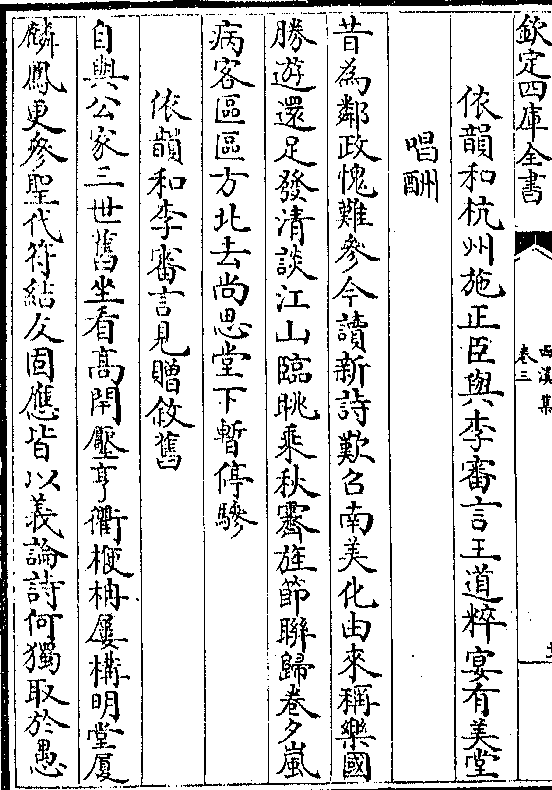 欽定四庫全書
西溪集
卷三
依韻和杭州施正臣與李審言王道粹宴有美堂
唱酬
昔為鄰政愧難參今讀新詩歎召南美化由來稱樂國
勝遊還足發清談江山臨眺乘秋霽旌節聯歸卷夕嵐
病客區區方北去尚思堂下暫停驂
依韻和李審言見贈敘舊
自與公家三世舊坐看高閈壓亨衢楩柟屢構明堂厦
麟鳳更參聖代符結友固應皆以義論詩何獨取於愚